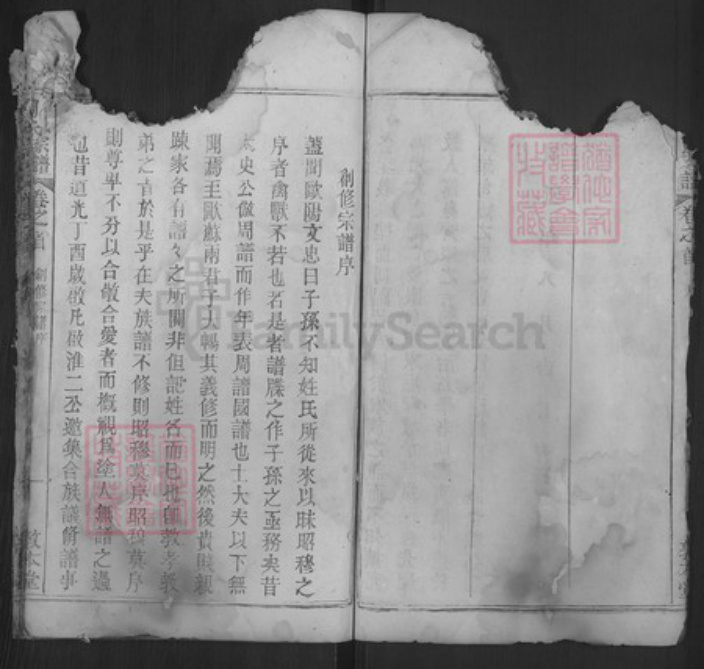 創修宗譜序
蓋聞歐陽文忠曰子孫不知姓氏所從來以昧昭穆之
序者禽獸不若也若是者譜牒之作子孫之亟務矣昔
太史公倣周譜而作年表周譜國譜也士大夫以下無
聞焉至歐蘇兩君子大暢其義修而明之然後貴賤親
踈家各有譜々之所關非但記姓名而已也即教孝教
弟之旨於是乎在夫族譜不修則昭穆莫序昭穆莫序
則尊卑不分以合敬合愛者而概視為塗人無譜之過
也昔道光丁酉歲啟淮二公邀集合族議修譜事
宗譜
卷之首
創修宗譜序
一
敦本堂
譜
卷之首
FamilySearch